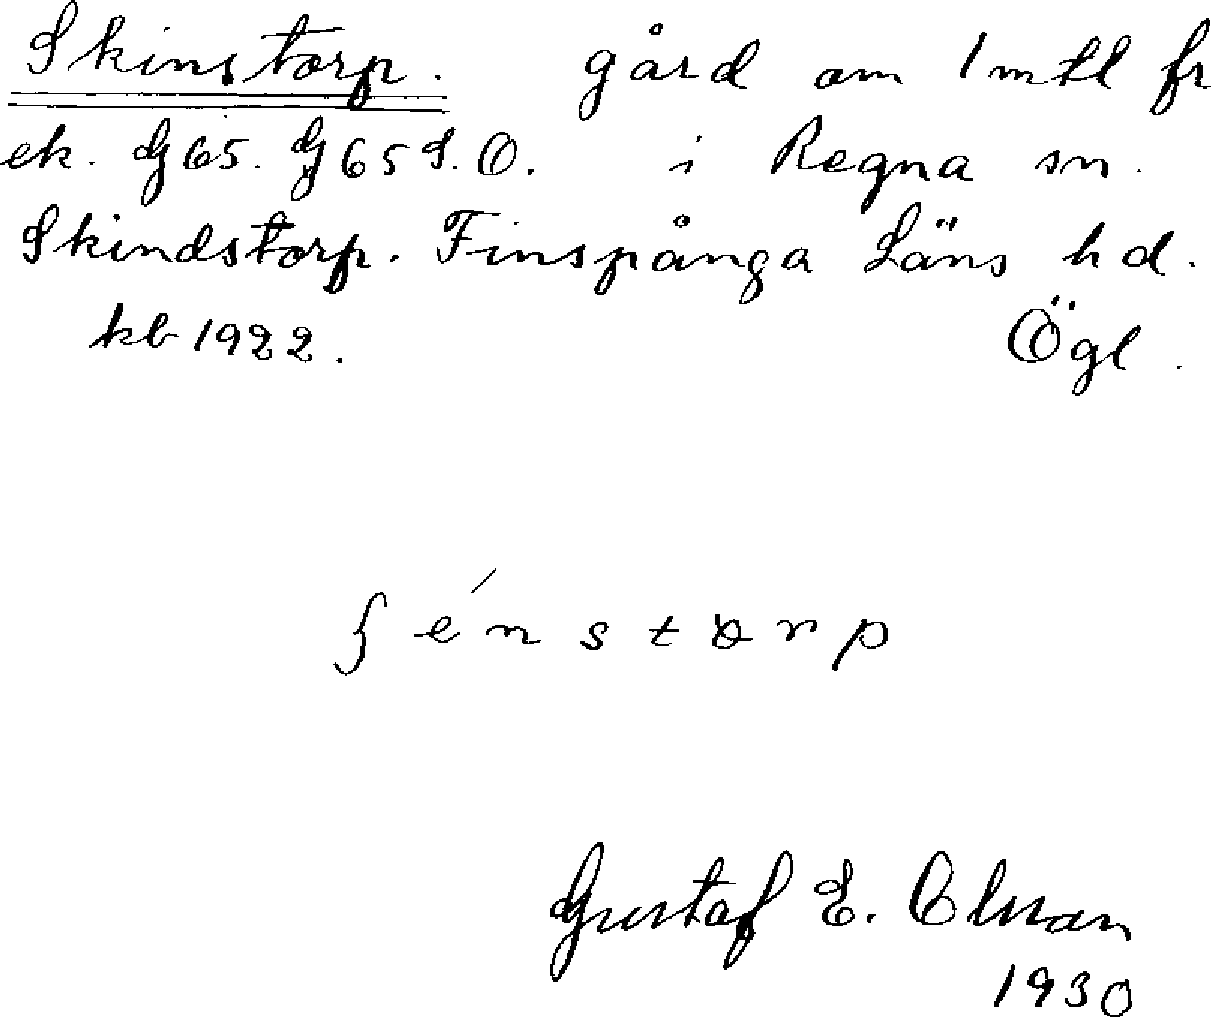 Skinstorp. gård om 1 mtl fr
ek. G 65. G 65 S.O. i Regna sn.
Skindstorp. Finspånga Läns hd.
kb 1922. Ögl.
ʃénstorp
Gustaf E.
1930